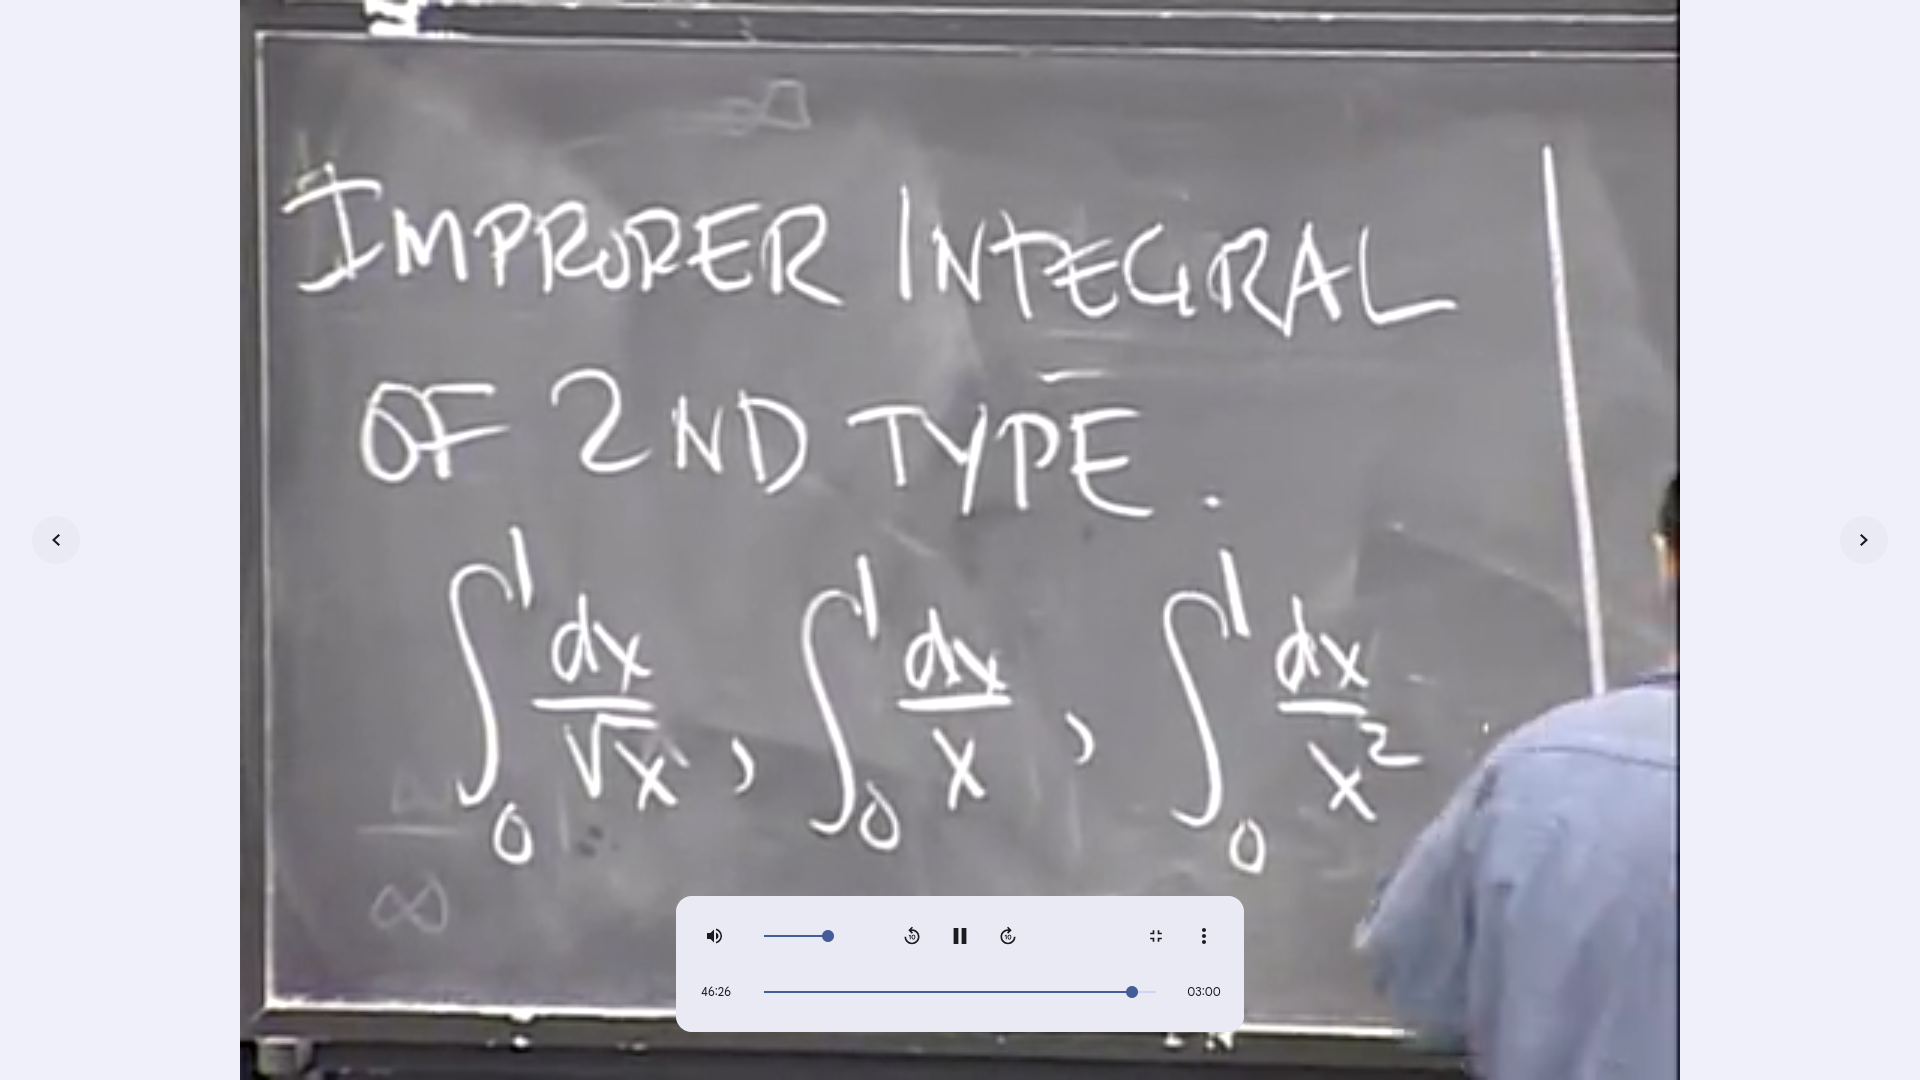 IMPROPER INTEGRAL
OF 2ND TYPE.
∫₀¹ dx/√x , ∫₀¹ dx/x , ∫₀¹ dx/x²
∞
10 10
46:26 03:00